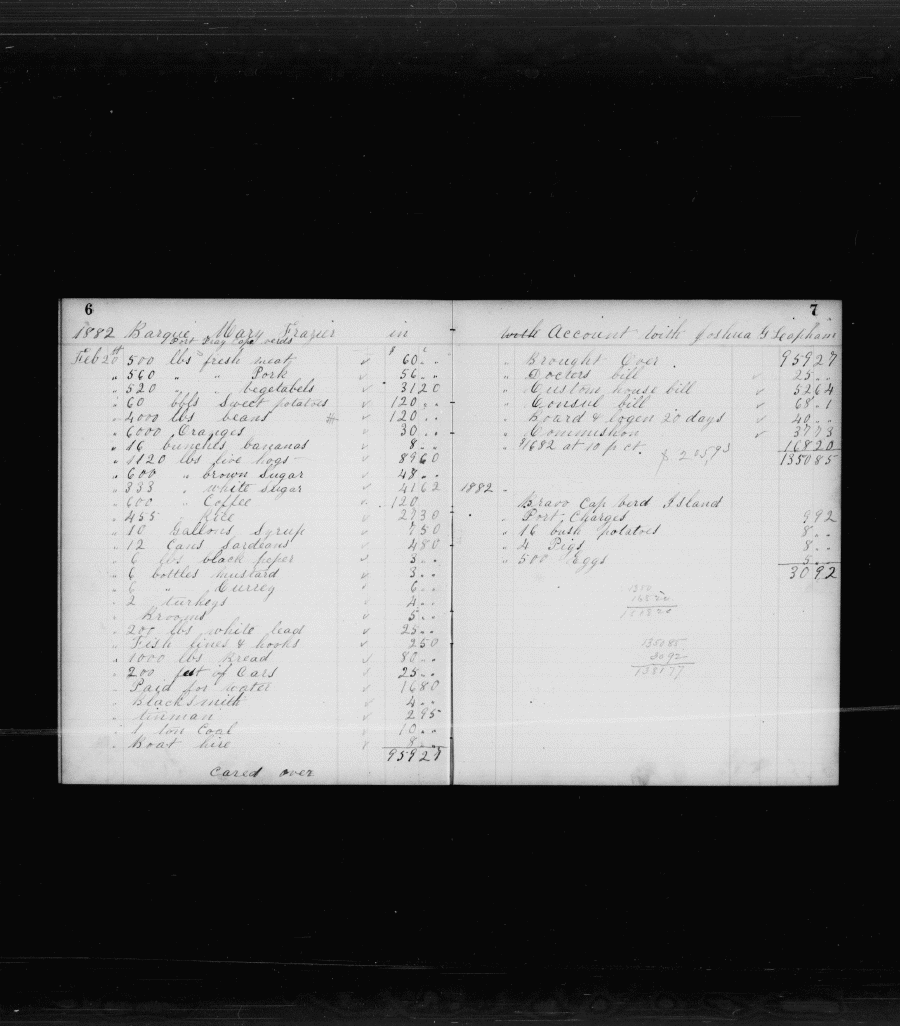 6
1882 Barque Mary Frazier in
Port Pray Cape verds
$ c
Feb 20th 500 lbs fresh meat v 60 . .
" 560 " " Pork v 56 . .
" 520 " " begetabels v 3120
" 60 bbls Sweet potatoes v 120 . .
" 4000 lbs beans v 120 . .
" 6000 Oranges v 30 . .
" 16 bunches bananas v 8 . .
" 1120 lbs live hogs v 8960
" 600 " brown Sugar v 48 . .
" 333 " white Sugar v 4162
" 600 " Coffee v 120
" 455 " Rice v 2730
" 10 Gallons Syrup v 750
" 12 Cans Sardeans v 480
" 6 lbs black peper v 3 . .
" 6 bottles mustard v 3 . .
" 6 " Currey v 6 . .
" 2 turkeys v 4 . .
" Brooms v 5 . .
" 200 lbs white lead v 25 . .
" Fish lines & hooks v 250
" 1000 lbs Bread v 80 . .
" 200 feet of Oars v 25 . .
" Paid for water v 1680
" Blacksmith v 4 . .
" tinman v 295
" 1 ton Coal v 10 . .
" Boat hire v 8 . .
95927
Cared over
7
with Account With Joshua G Leapham
" Brought Over 95927
" Docters bill v 25 . .
" Custom house bill v 5264
" Consul bill v 68 . 1
" board & logen 20 days v 40 . .
" Commishion v 3773
" $1682 at 10 p ct. 16820
135085
1882
Bravo Cap berd Island
" Port Charges 992
" 16 bush potatoes 8 . .
" 4 Pigs 8 . .
" 500 Eggs 5 . .
3092
135085
3092
138177